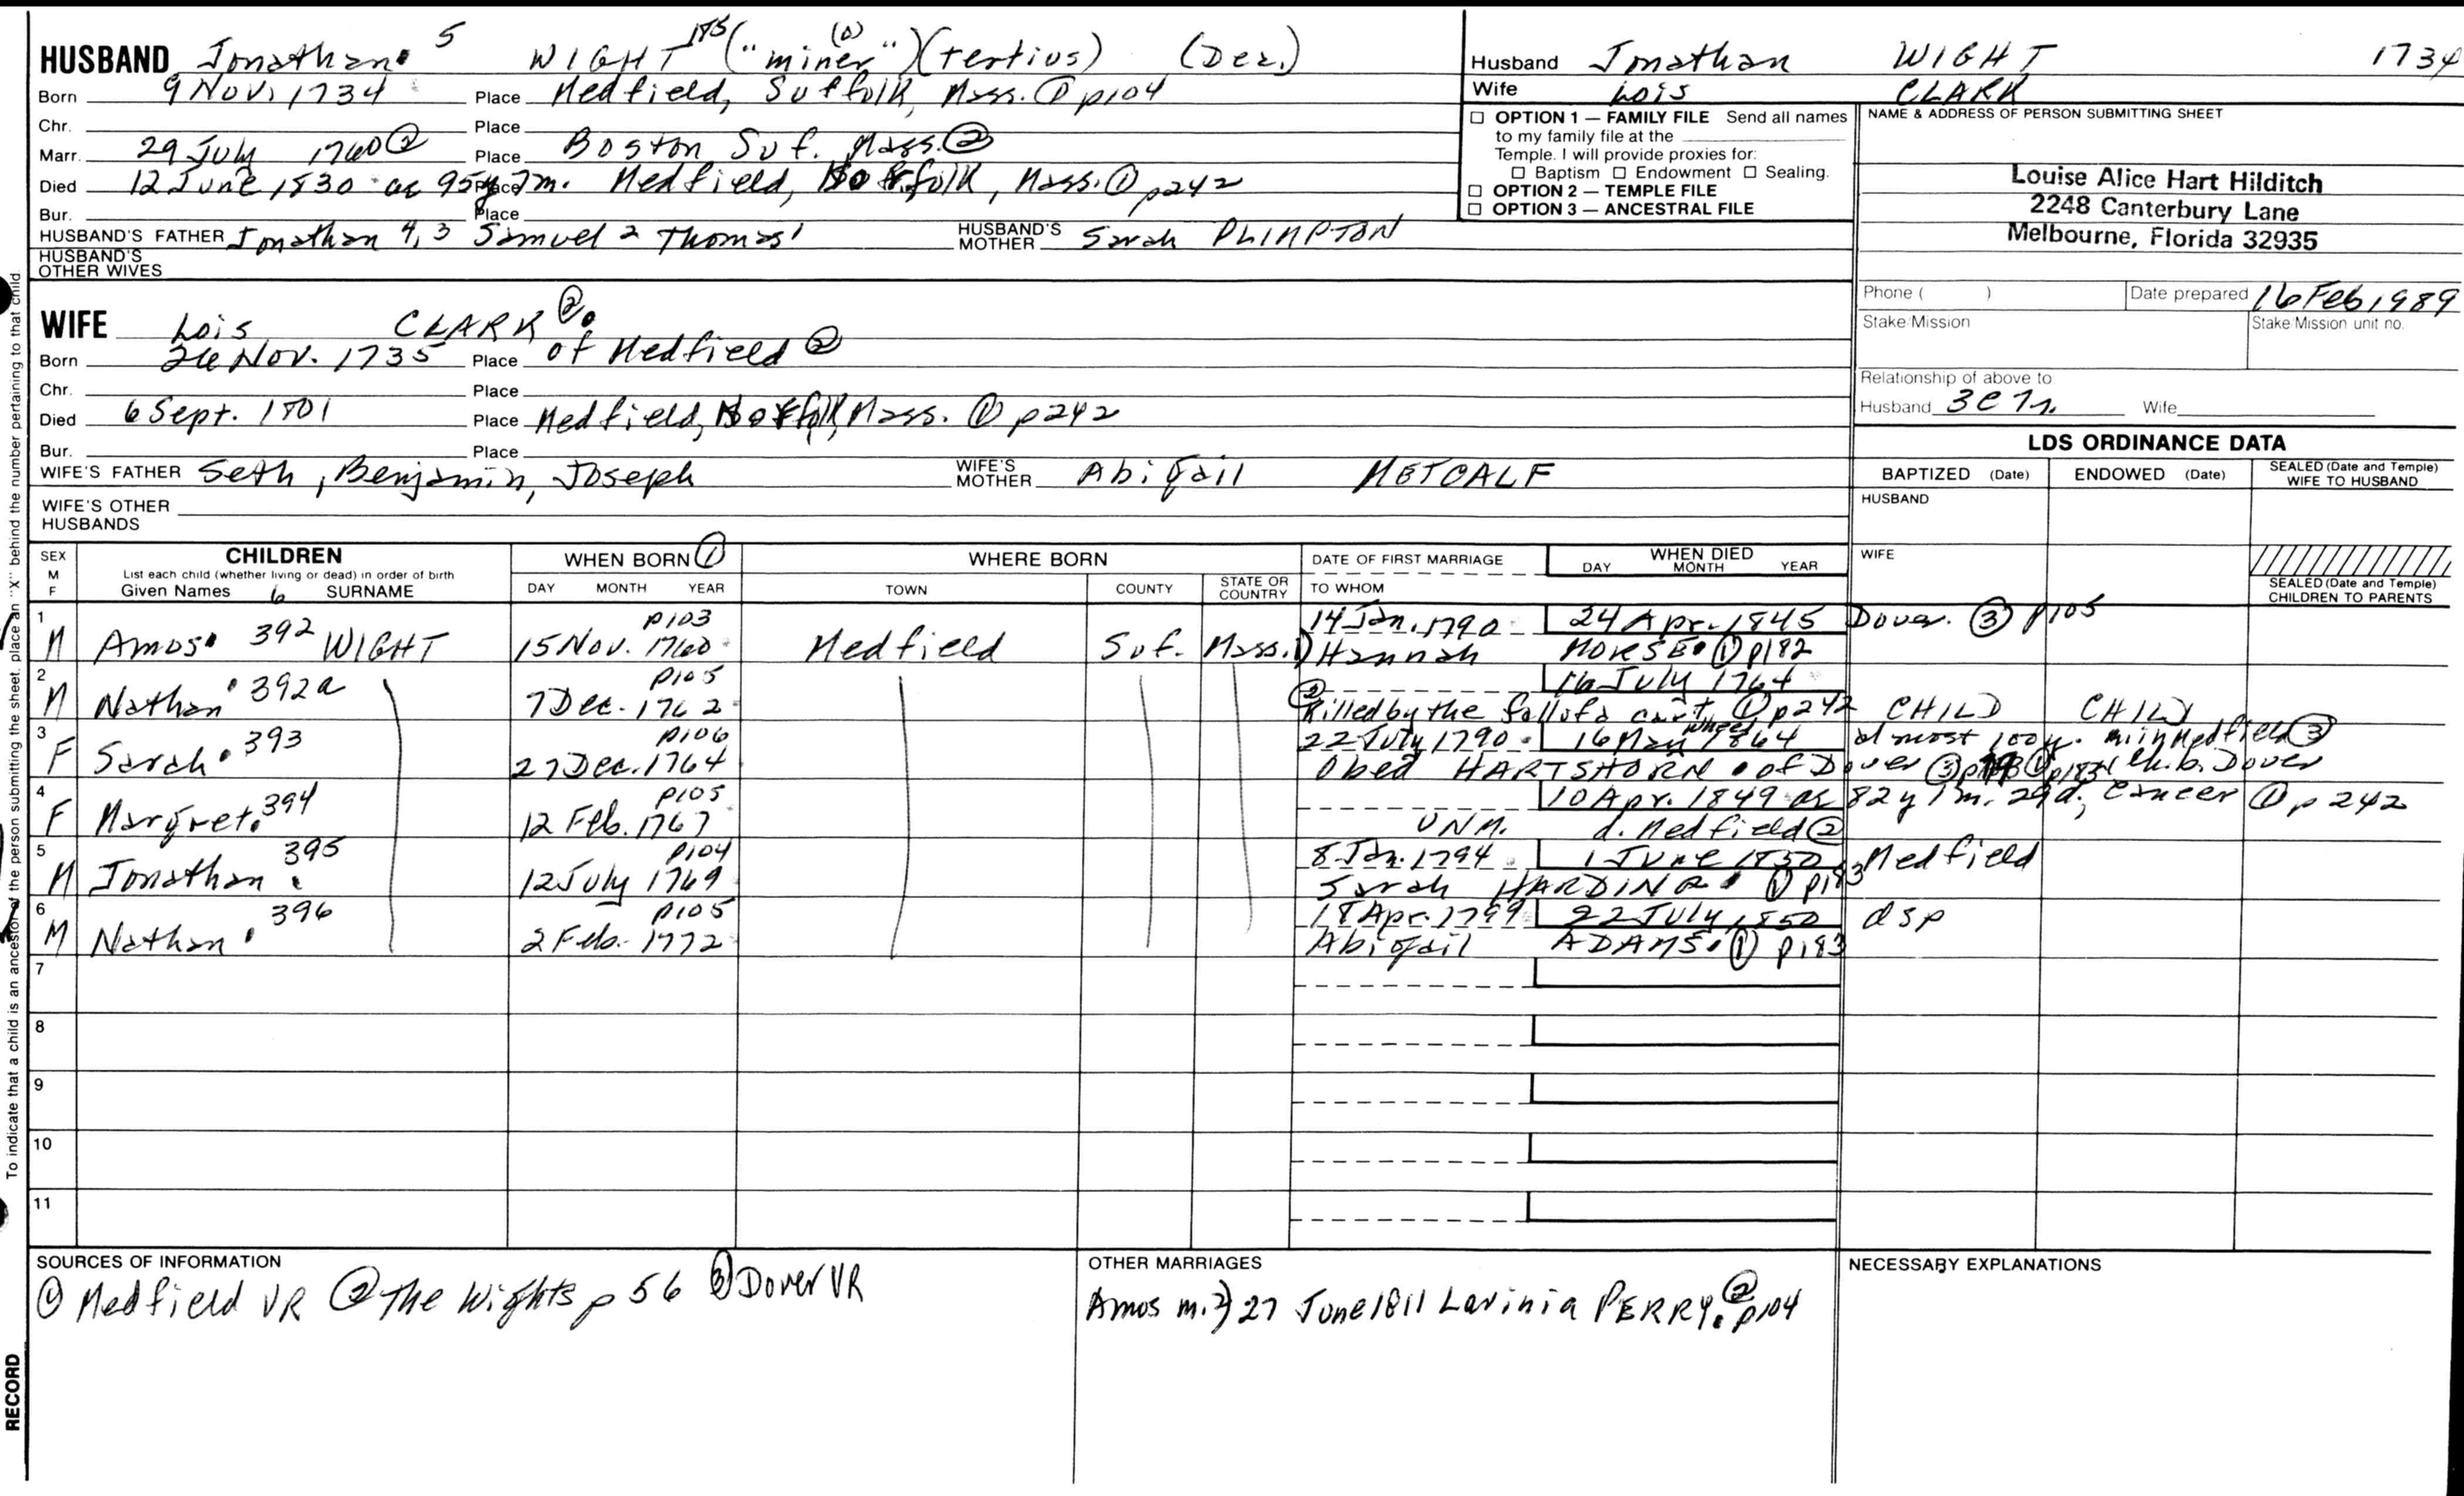 HUSBAND Jonathan 5 WIGHT 175 ("miner") (o) (tertius) (Dea.)
Born 9 Nov. 1734 Place Medfield, Suffolk, Mass. ① p104
Chr. Place
Marr. 29 July 1760 ② Place Boston Suf. Mass. ②
Died 12 June 1830 ae 95y 7m. Place Medfield, Norfolk, Mass. ① p242
Bur. Place
HUSBAND'S FATHER Jonathan 4, 3 Samuel 2 Thomas 1 HUSBAND'S MOTHER Sarah PLIMPTON
HUSBAND'S OTHER WIVES
Husband Jonathan WIGHT 1734
Wife Lois CLARK
☐ OPTION 1 — FAMILY FILE Send all names
to my family file at the
Temple. I will provide proxies for:
☐ Baptism ☐ Endowment ☐ Sealing.
☐ OPTION 2 — TEMPLE FILE
☐ OPTION 3 — ANCESTRAL FILE
NAME & ADDRESS OF PERSON SUBMITTING SHEET
Louise Alice Hart Hilditch
2248 Canterbury Lane
Melbourne, Florida 32935
Phone ( ) Date prepared 16 Feb 1989
Stake/Mission Stake/Mission unit no.
Relationship of above to
Husband 3C7r. Wife
WIFE Lois CLARK ②
Born 26 Nov. 1735 Place of Medfield ②
Chr. Place
Died 6 Sept. 1801 Place Medfield, Norfolk, Mass. ① p242
Bur. Place
WIFE'S FATHER Seth, Benjamin, Joseph WIFE'S MOTHER Abigail METCALF
WIFE'S OTHER HUSBANDS
LDS ORDINANCE DATA
BAPTIZED (Date) ENDOWED (Date) SEALED (Date and Temple) WIFE TO HUSBAND
HUSBAND
WIFE
SEALED (Date and Temple) CHILDREN TO PARENTS
SEX M F CHILDREN WHEN BORN ① WHERE BORN DATE OF FIRST MARRIAGE WHEN DIED
List each child (whether living or dead) in order of birth DAY MONTH YEAR
Given Names 6 SURNAME DAY MONTH YEAR TOWN COUNTY STATE OR COUNTRY TO WHOM
1 p103 14 Jan. 1790 24 Apr. 1845 Dover. ③ p105
M Amos 392 WIGHT 15 Nov. 1760 Medfield Suf. Mass. 1) Hannah MORSE ① p182
2 p105 16 July 1764
M Nathan 392a 7 Dec. 1762 ② Killed by the fall of a cart wheel ① p242 CHILD CHILD
3 p106 22 July 1790 16 May 1864 almost 100y. m in Medfield ③
F Sarah 393 27 Dec. 1764 Obed HARTSHORN of Dover ③ ① p183 ch. b. Dover
4 p105 10 Apr. 1849 ae 82y 1m. 29d; cancer ① p242
F Margret 394 12 Feb. 1767 UNM. d. Medfield ②
5 p104 8 Jan. 1794 1 June 1850 Medfield
M Jonathan 395 12 July 1769 Sarah HARDING ① p183
6 p105 18 Apr. 1799 22 July 1850 dsp
M Nathan 396 2 Feb. 1772 Abigail ADAMS ① p183
7
8
9
10
11
SOURCES OF INFORMATION
① Medfield VR ② The Wights p 56 ③ Dover VR
OTHER MARRIAGES
Amos m. 2) 27 June 1811 Lavinia PERRY. ② p104
NECESSARY EXPLANATIONS
To indicate that a child is an ancestor of the person submitting the sheet, place an "X" behind the number pertaining to that child
RECORD